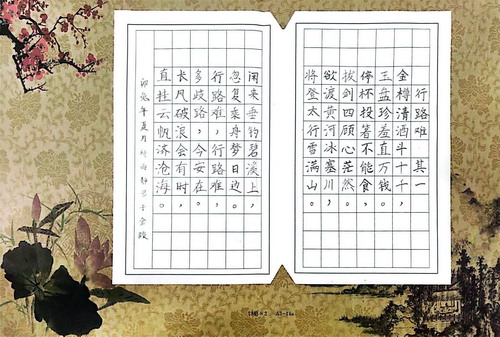 行路难 其一
金樽清酒斗十千，
玉盘珍羞直万钱。
停杯投箸不能食，
拔剑四顾心茫然。
欲渡黄河冰塞川，
将登太行雪满山。
闲来垂钓碧溪上，
忽复乘舟梦日边。
行路难，行路难，
多歧路，今安在。
长风破浪会有时，
直挂云帆济沧海。
卯兔年夏月